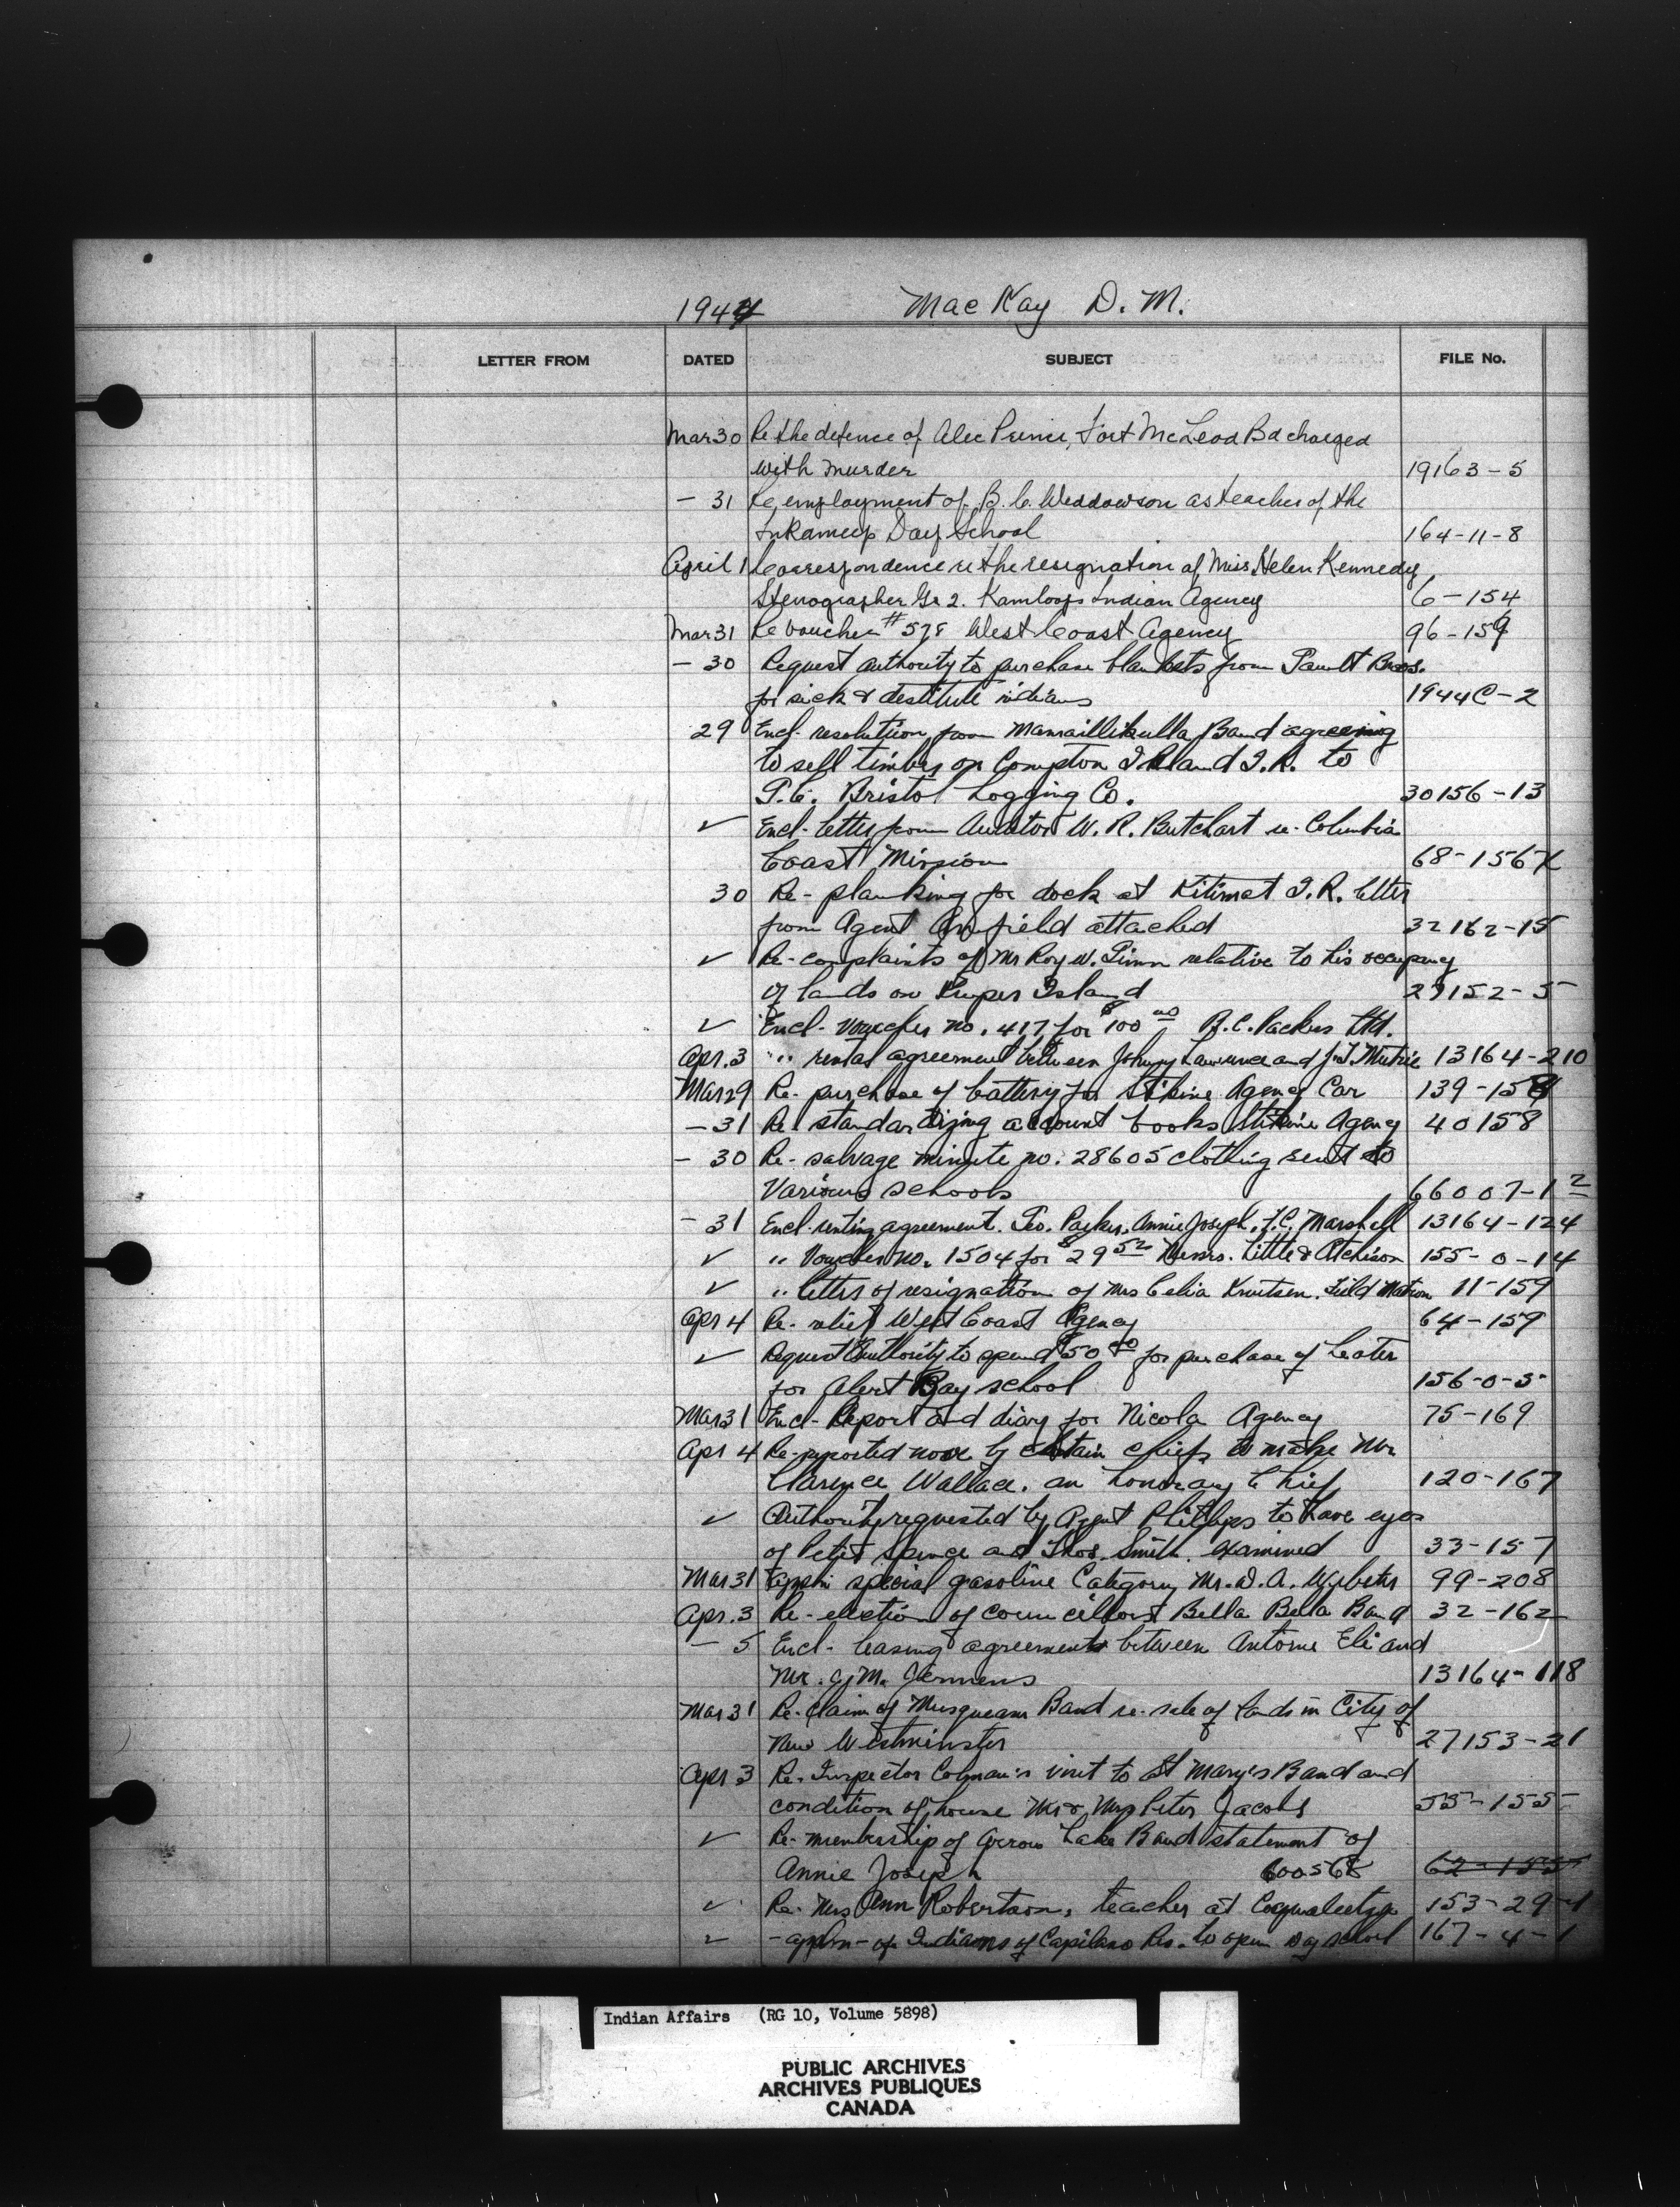 1944 MacKay D. M.
LETTER FROM DATED SUBJECT FILE No.
Mar 30 Re the defence of Alec Prince, Fort McLeod Bd charged
with murder 19163-5
- 31 Re employment of B. C. Weddowson as teacher of the
Inkameep Day School 164-11-8
April 1 Correspondence re the resignation of Miss Helen Kennedy
Stenographer Gr 2. Kamloops Indian Agency 6-154
Mar 31 Re voucher #578 West Coast Agency 96-159
- 30 Request authority to purchase blankets from Bros.
for sick & destitute indians 1944C-2
29 Encl. resolution from Mamaillikulla Band agreeing
to sell timber on Compton Island I.R. to
P.C. Bristol Logging Co. 30156-13
✓ Encl. letter from Auditor W. R. Butchart re- Columbia
Coast Mission 68-156
30 Re- planking for dock at Kitimat I.R. letter
from Agent Anfield attached 32162-15
✓ Re- complaints of Mr Roy W. relative to his occupancy
of lands on Kuper Island 27152-5
✓ Encl- voucher no. 417 for $100 00 B.C. Packers Ltd.
Apr. 3 " rental agreement between Johnny Lawrence and J.T. Mutrie 13164-210
Mar 29 Re- purchase of battery for Stikine Agency Car 139-158
- 31 Re standardizing account books Stikine Agency 40158
- 30 Re- salvage minute no. 28605 clothing sent to
Various schools 66007-1 2
- 31 Encl- renting agreement. Geo. Parker, Annie Joseph, F.C. Marshall 13164-124
✓ " Voucher no. 1504 for $29 52 Messrs. Little & Atchison 155-0-14
✓ " letter of resignation of Mrs Celia Knutsen. Field Matron 11-159
Apr 4 Re- relief West Coast Agency 64-159
✓ Request Authority to spend $50 00 for purchase of heater
for Alert Bay school 156-0-5
Mar 31 Encl- Report and diary for Nicola Agency 75-169
Apr 4 Re- reported move by certain chiefs to make Mr
Clarence Wallace. an honorary Chief 120-167
✓ Authority requested by Agent Phillips to have eyes
of Peter Spence and Thos. Smith examined 33-157
Mar 31 Appln special gasoline Category Mr. D. A. Webster 99-208
Apr. 3 Re- election of councillors Bella Bella Band 32-162
- 5 Encl- leasing agreement between Antoine Eli and
Mr. J. M. Jermens 13164-118
Mar 31 Re- Claim of Musqueam Band re- sale of lands in City of
New Westminster 27153-21
Apr 3 Re- Inspector Colman's visit to St Mary's Band and
condition of house Mr & Mrs Peter Jacobs 55-155
✓ Re- membership of Arrow Lake Band statement of
Annie Joseph 600568 62-155
✓ Re- Mrs Ann Robertson, teacher at Coqualeetza 153-29-1
✓ - appln - of Indians of Capilano Res. to open day school 167-4-1
Indian Affairs (RG 10, Volume 5898)
PUBLIC ARCHIVES
ARCHIVES PUBLIQUES
CANADA